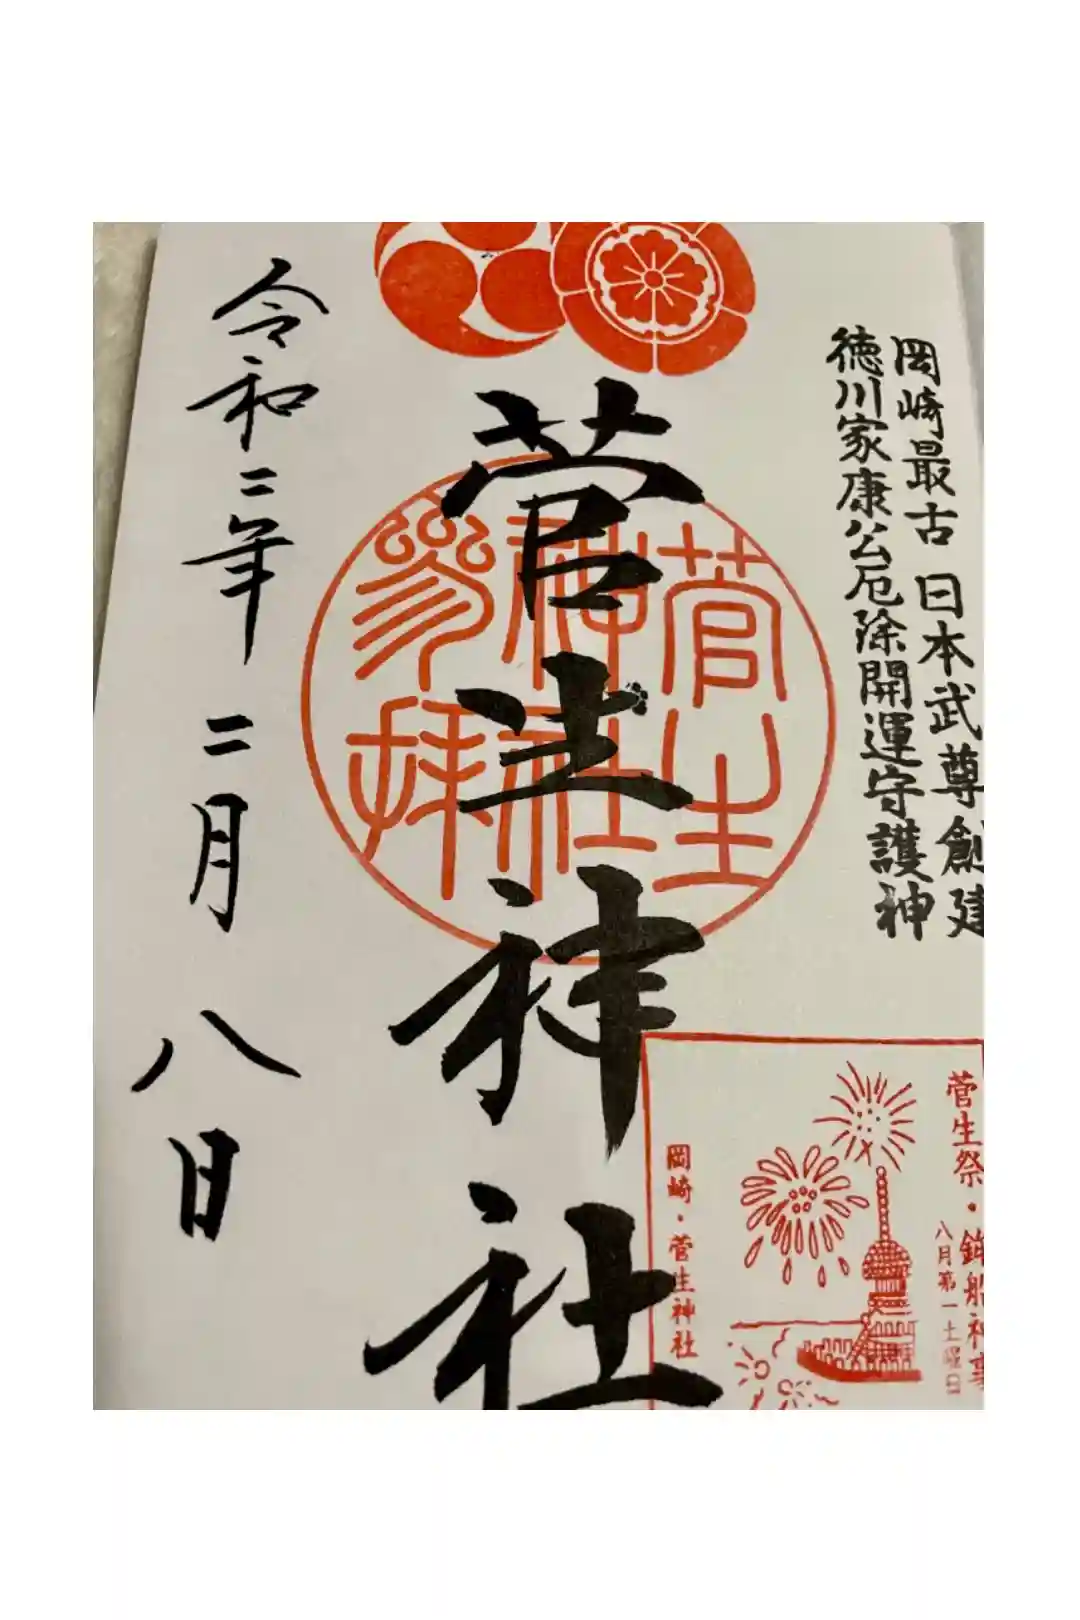 岡崎最古 日本武尊創建
徳川家康公厄除開運守護神
菅生神社
菅生
神社
参拝
令和二年 二月 八日
菅生祭・鉾船神事
八月第一土曜日
岡崎・菅生神社